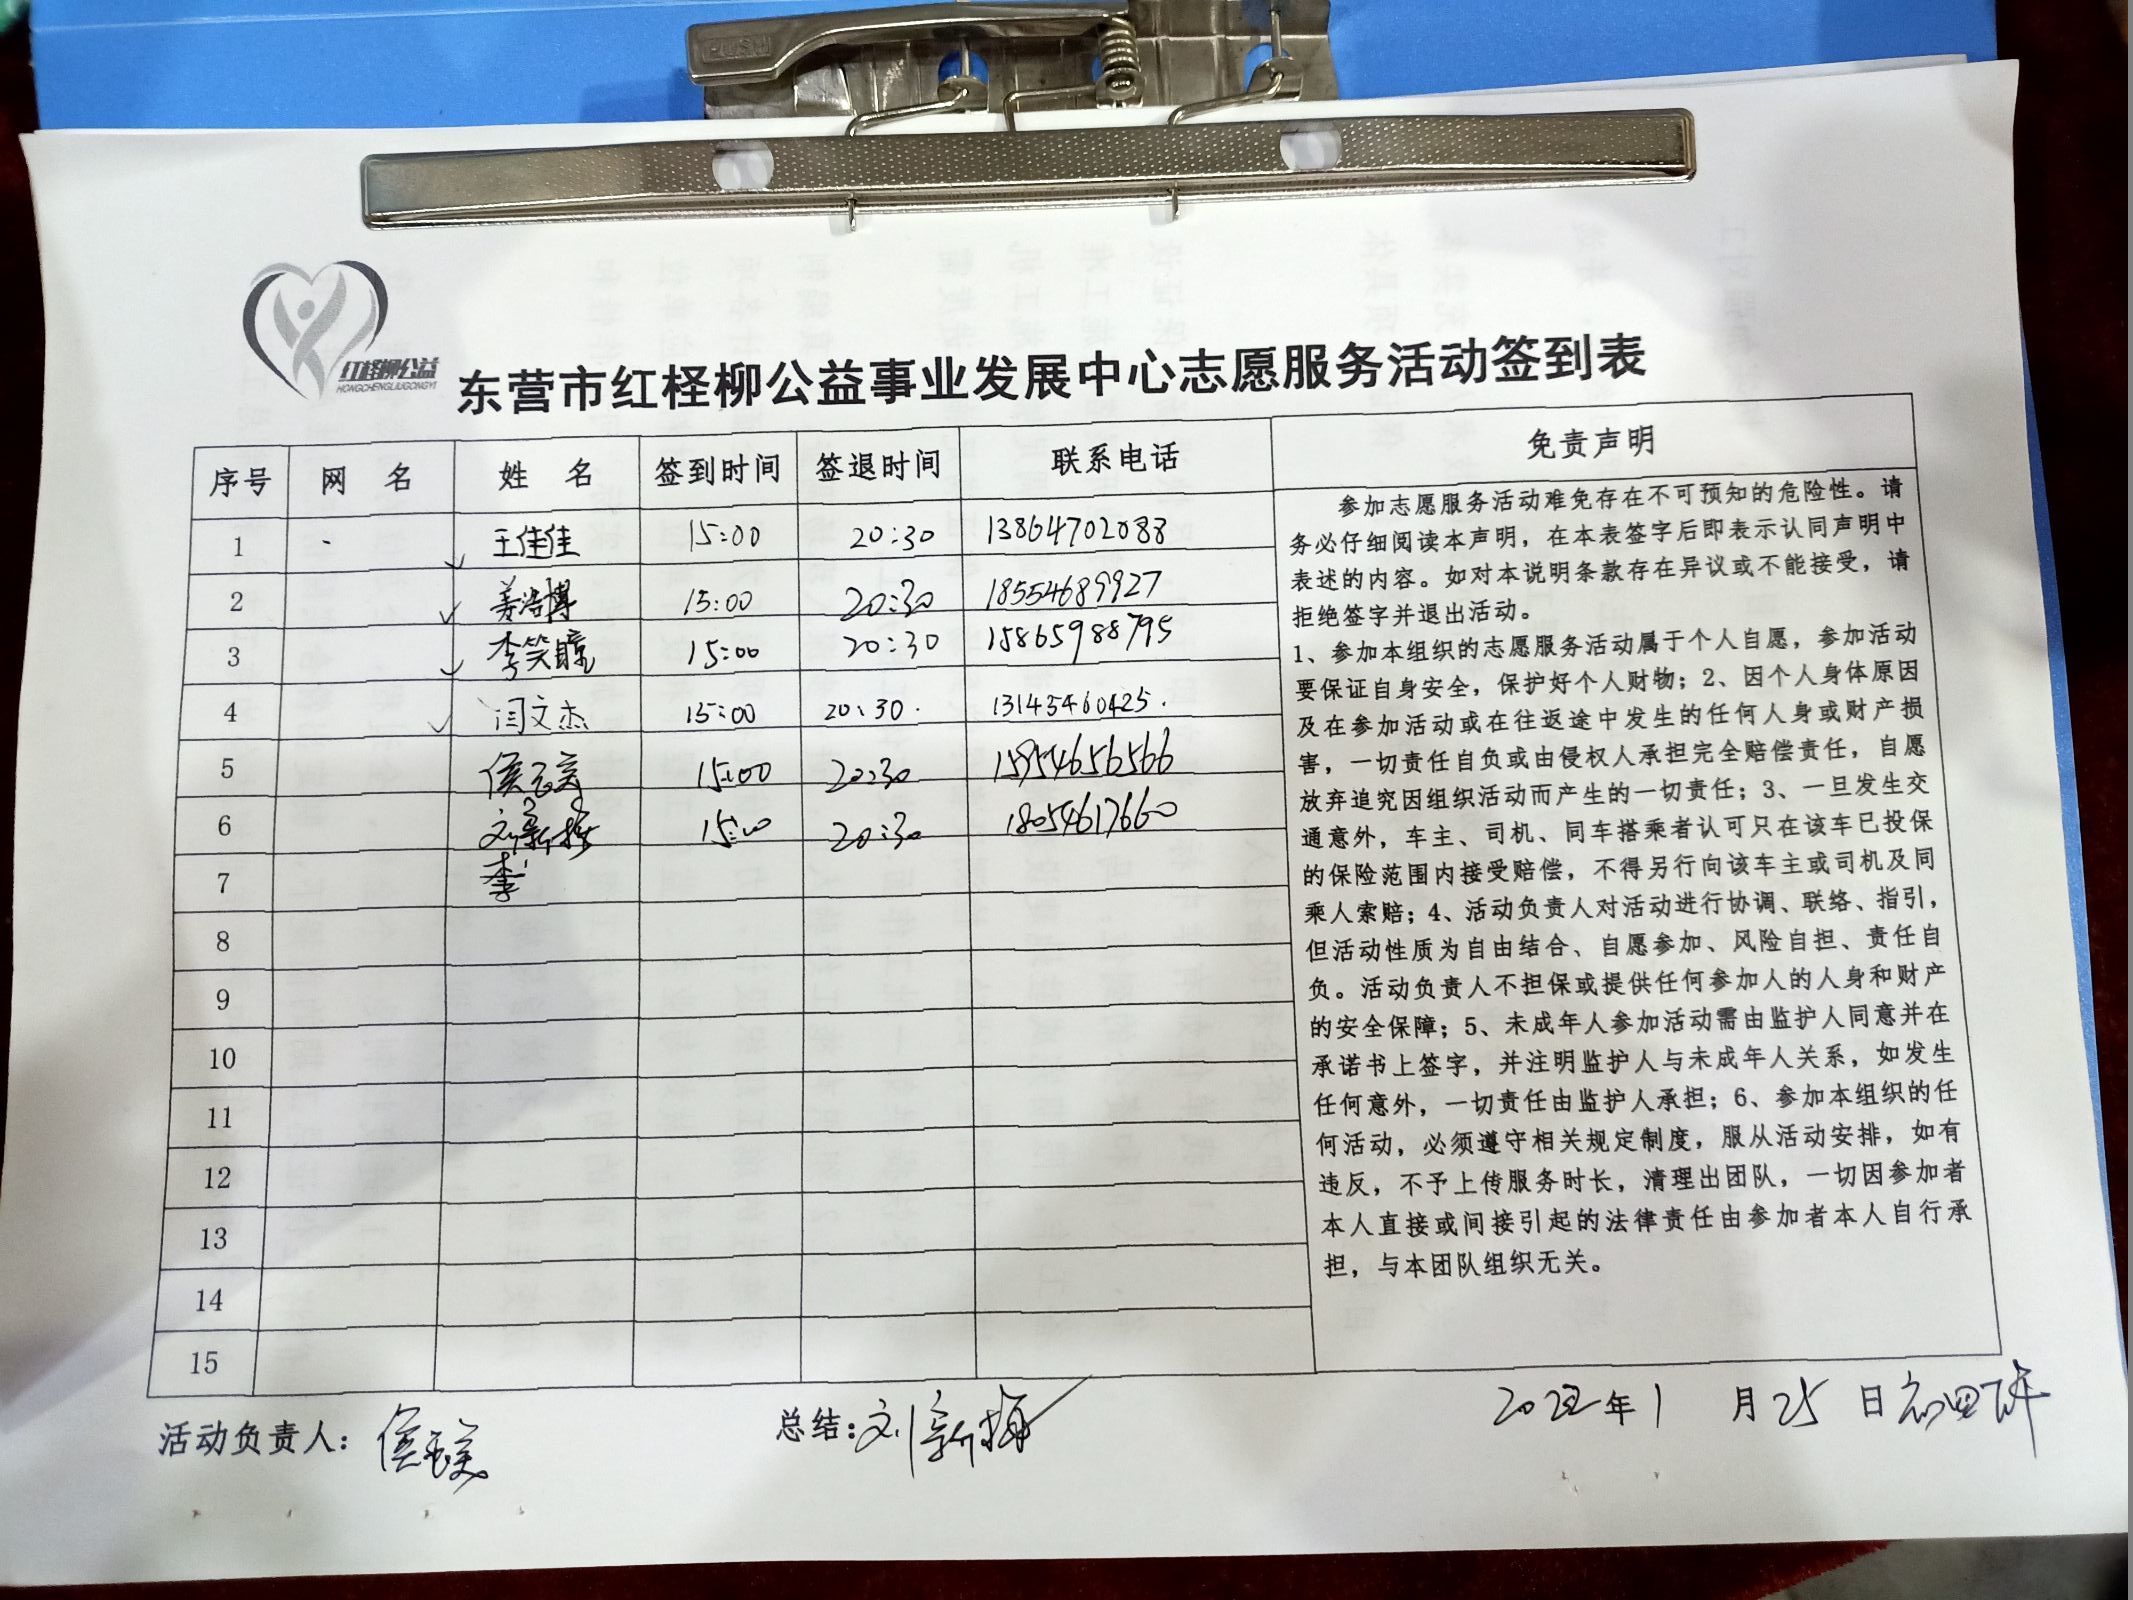 红柽柳公益
HONGCHENGLIUGONGYI
东营市红柽柳公益事业发展中心志愿服务活动签到表
序号 网 名 姓 名 签到时间 签退时间 联系电话 免责声明
1 王佳佳 15:00 20:30 13864702088
2 姜浩博 15:00 20:30 18554689927
3 李笑 15:00 20:30 15865988795
4 闫文杰 15:00 20:30. 13145460425.
5 侯玉美 15:00 20:30 15954656566
6 刘新梅 15:00 20:30 18054617660
7 李
8
9
10
11
12
13
14
15
参加志愿服务活动难免存在不可预知的危险性。请
务必仔细阅读本声明，在本表签字后即表示认同声明中
表述的内容。如对本说明条款存在异议或不能接受，请
拒绝签字并退出活动。
1、参加本组织的志愿服务活动属于个人自愿，参加活动
要保证自身安全，保护好个人财物；2、因个人身体原因
及在参加活动或在往返途中发生的任何人身或财产损
害，一切责任自负或由侵权人承担完全赔偿责任，自愿
放弃追究因组织活动而产生的一切责任；3、一旦发生交
通意外，车主、司机、同车搭乘者认可只在该车已投保
的保险范围内接受赔偿，不得另行向该车主或司机及同
乘人索赔；4、活动负责人对活动进行协调、联络、指引，
但活动性质为自由结合、自愿参加、风险自担、责任自
负。活动负责人不担保或提供任何参加人的人身和财产
的安全保障；5、未成年人参加活动需由监护人同意并在
承诺书上签字，并注明监护人与未成年人关系，如发生
任何意外，一切责任由监护人承担；6、参加本组织的任
何活动，必须遵守相关规定制度，服从活动安排，如有
违反，不予上传服务时长，清理出团队，一切因参加者
本人直接或间接引起的法律责任由参加者本人自行承
担，与本团队组织无关。
活动负责人：侯玉美 总结：刘新梅 年1月25日